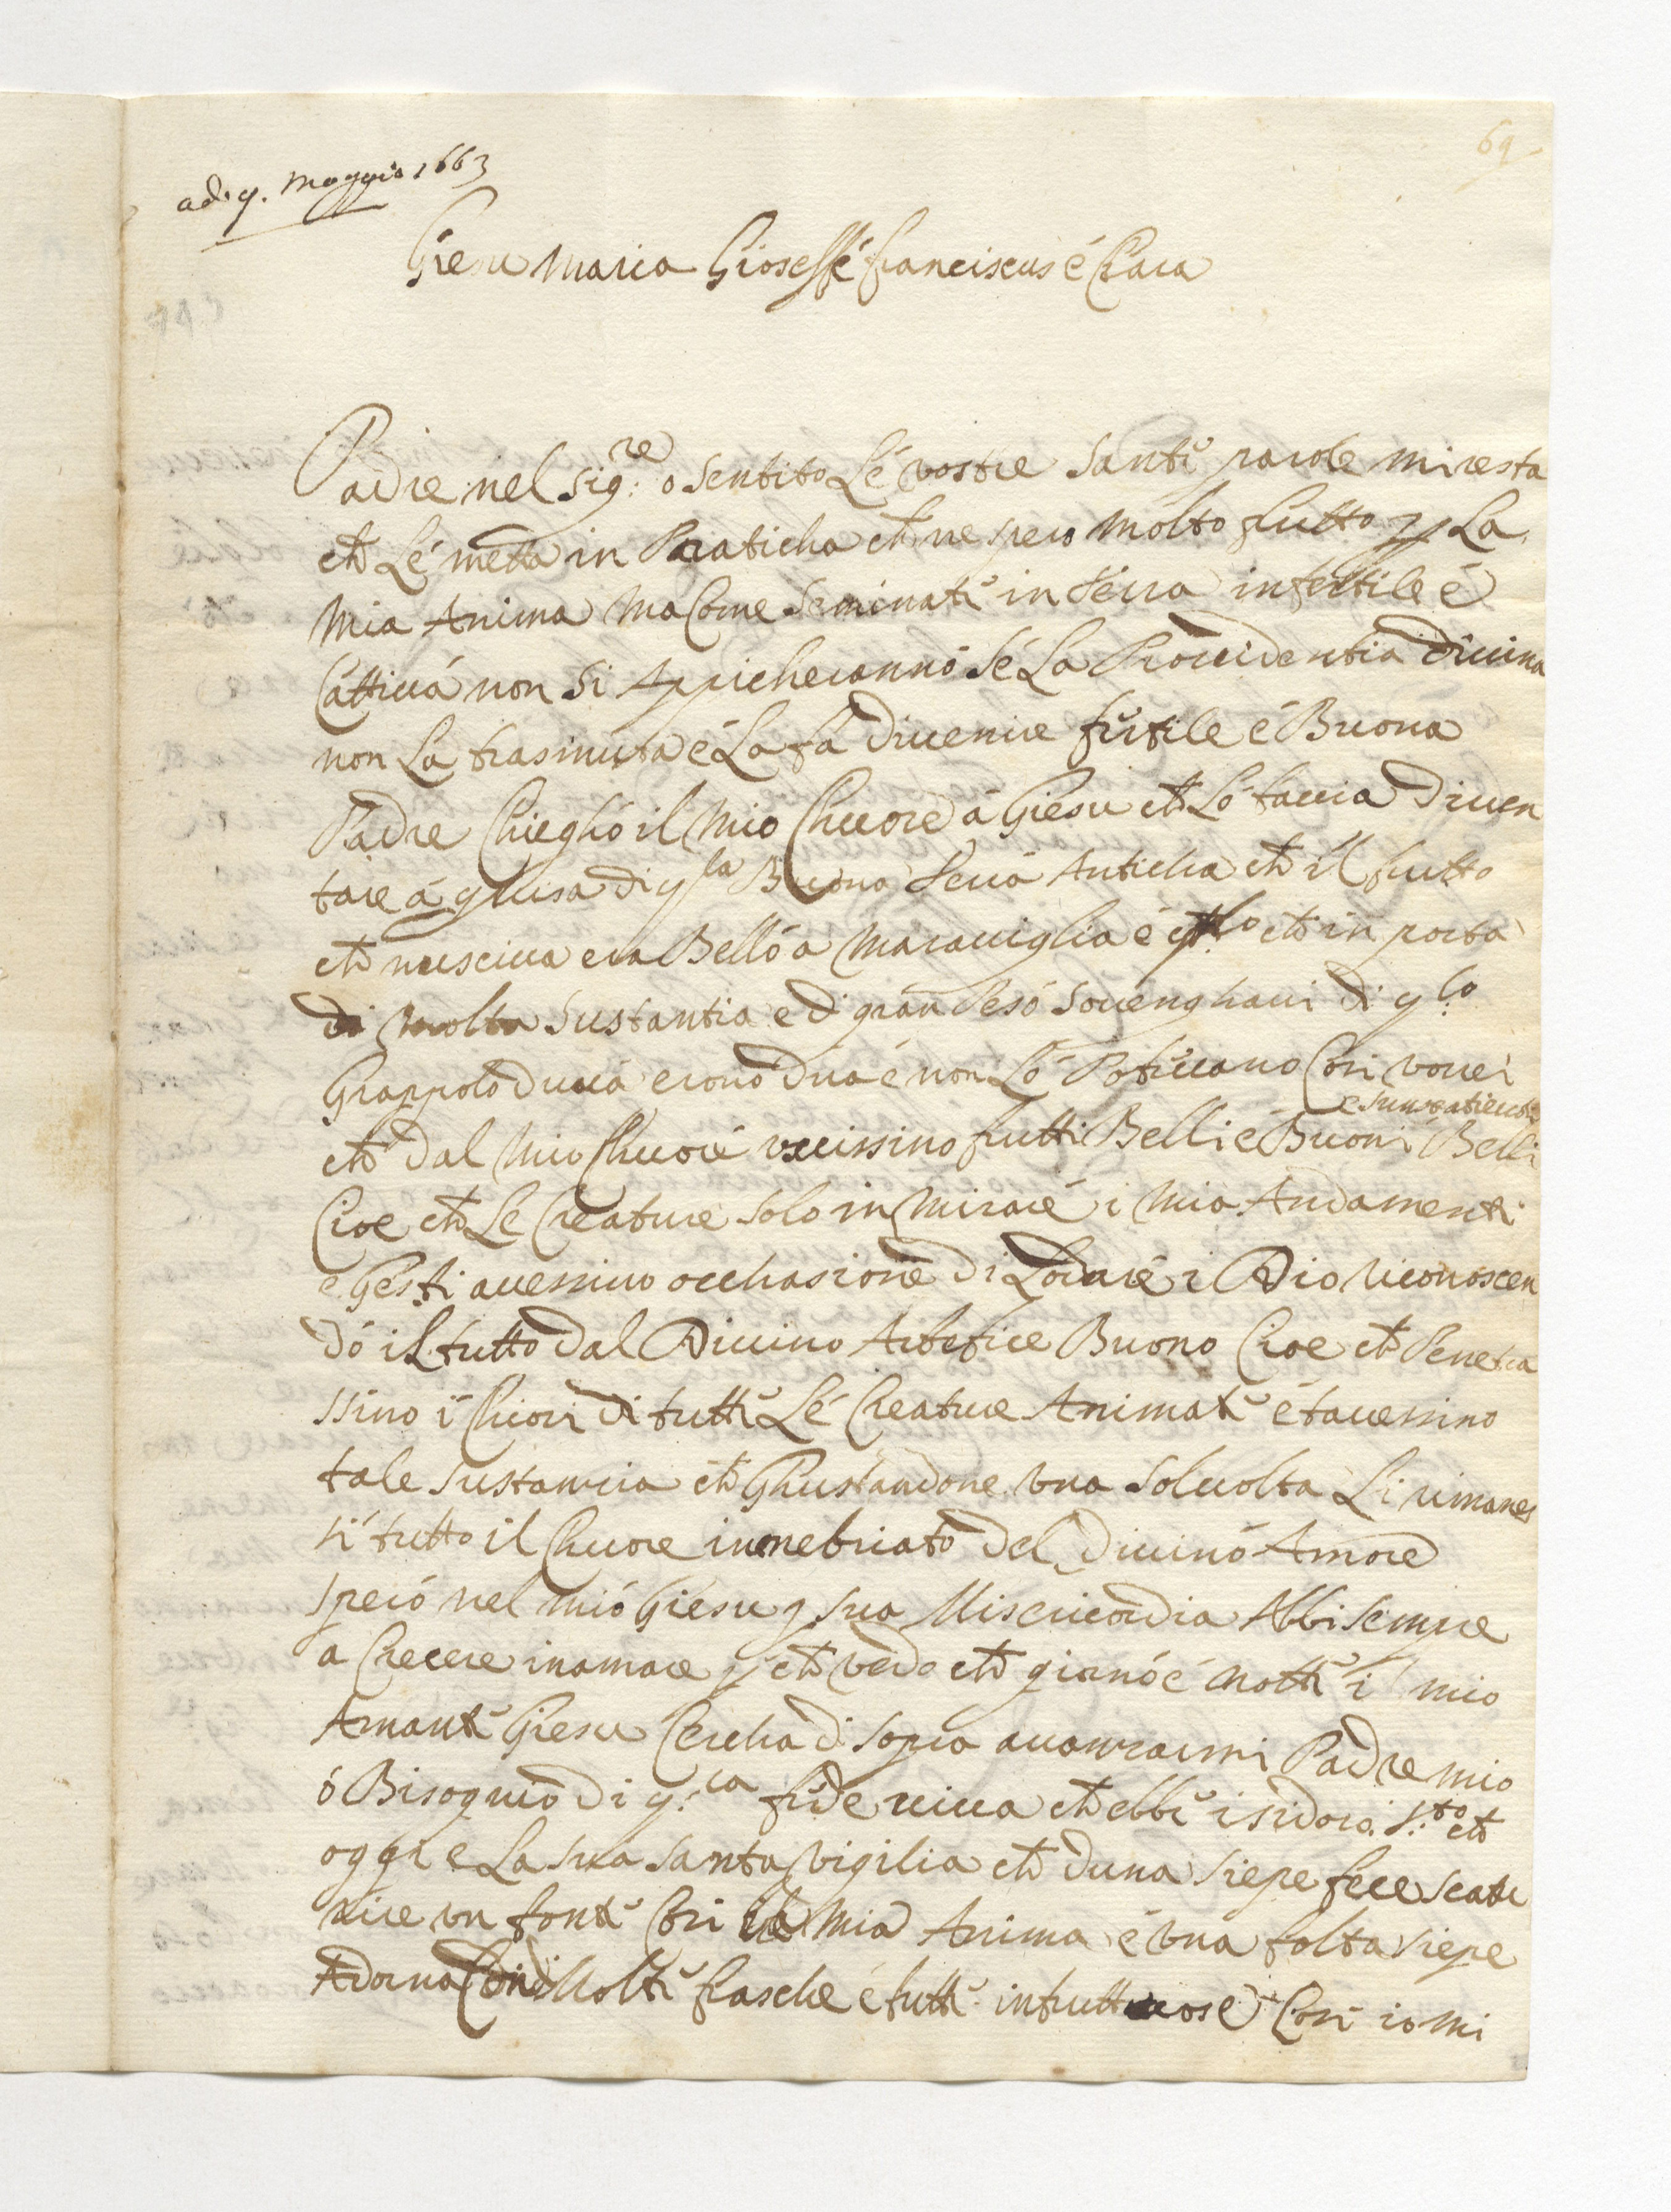 69
adi 9. Maggio 1663
Giesu Maria Gioseffé franciscus é Chiara
Padre nel Sig:re o sentito Lé vostre santi parole mi resta
che Lé metta in Praticha che ne spero molto frutto p La
mia Anima ma Come seminati in terra infertile é
Cattiuá non si Appicheranno sé La Prouidentia diuina
non La trasmuta é La fá diuenire fertile é Buona
Padre Chiegho il mio Chuore á Giesu che Ló faccia diuen
tare á ghuisa di q.la Buona terrá Anticha che il frutto
che nusciua era Belló a marauiglia é q.lo che in porta
di molta sustantia e di gran Pesó souenghaui di q.lo
Grappolo duuá erono dua é non Ló Potéuano Cosi vorrei
che dal mio Chuoré vscissino frutti Belli é Buoni é sunstatieuoli Belli
Cioe che Le Creature solo in mirare i mia Andamenti
e Gesti auessino occhasione di Lodaré i Dio riconoscen
dó il tutto dal Diuino Artefice Buono Cioe che Penetra
ssino i Chuori di tutti Lé Creature Animati é tauessino
tale sustanzia che Ghustandone vna sol uolta Li rimanes
si tutto il Chuore innebriato del diuinó Amore
speró nel mió Giesu p sua Misericordia Abbi sempre
a Crecere in amare p che vedo che giornó é notti i mio
Amanti Giesu Cercha di sopra auanzarmi Padre mio
ó Bisognio di q:la fede uiua che ebbi isidoro s:to che
oggi e La sua santa vigilia che duna siepe fece scatu
rire vn fonti Cosi la mia Anima é vna folta siepe
Adorna Con di Molti frasche é tutti infruttuose Cosi io mi